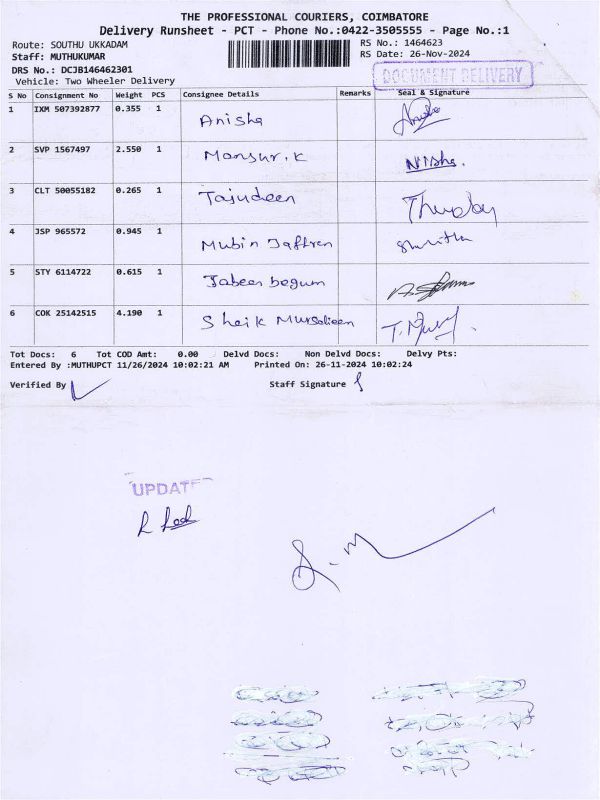 THE PROFESSIONAL COURIERS, COIMBATORE
Delivery Runsheet - PCT - Phone No.:0422-3505555 - Page No.:1
Route: SOUTHU UKKADAM
RS No.: 1464623
Staff: MUTHUKUMAR
RS Date: 26-Nov-2024
DRS No.: DCJB146462301
Vehicle: Two Wheeler Delivery
DOCUMENT DELIVERY
S No Consignment No Weight PCS Consignee Details Remarks Seal & Signature
1 IXM 507392877 0.355 1 Anisha
2 SVP 1567497 2.550 1 Mansur.K Nisha.
3 CLT 50055182 0.265 1 Tajudeen
4 JSP 965572 0.945 1 Mubin Jaffren
5 STY 6114722 0.615 1 Jabeen begum
6 COK 25142515 4.190 1 Sheik Mursaleen
Tot Docs: 6 Tot COD Amt: 0.00 Delvd Docs: Non Delvd Docs: Delvy Pts:
Entered By :MUTHUPCT 11/26/2024 10:02:21 AM Printed On: 26-11-2024 10:02:24
Verified By Staff Signature
UPDATE